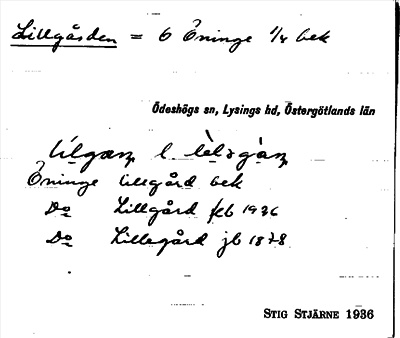 Lillgården = 6 Öninge 1/4 bek
Ödeshögs sn, Lysings hd, Östergötlands län
l
Öninge Lillegård bek
Do Lillgård feb 1926
Do Lillegård jb 1878
STIG STJÄRNE 1936